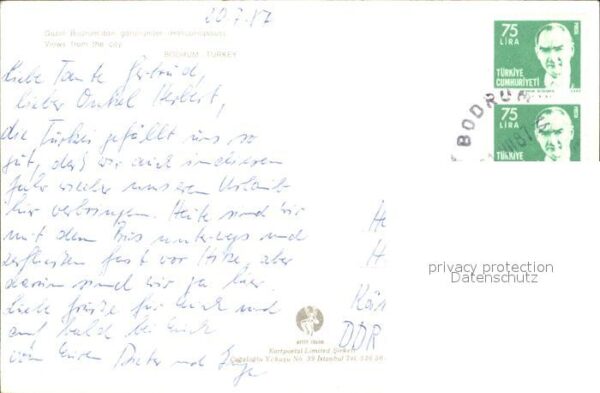 20.7.87
Güzel Bodrum'dan görünümler (Mausoleoulous)
Views from the city
BODRUM - TURKEY
Liebe Tante Gertrud,
lieber Onkel Herbert,
die Türkei gefällt uns so
gut, daß wir auch in diesem
Jahr wieder unseren Urlaub
hier verbringen. Heute sind wir
mit dem Bus unterwegs und
zerfließen fast vor Hitze, aber
darum sind wir ja hier.
Liebe Grüße für Euch und
auf bald bei Euch
von Euren Dieter und
75
LIRA
TÜRKİYE
CUMHURİYETİ
BODRUM
75
LIRA
TÜRKİYE
privacy protection
Datenschutz
DDR
Kartpostal Limited Şirketi
Cağaloğlu Yokuşu No. 39 İstanbul Tel.